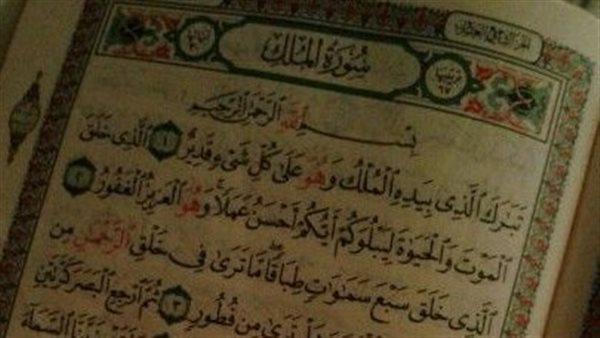 الجزء التاسع والعشرون
سُورَةُ المُلْكِ
بِسْمِ اللَّهِ الرَّحْمَٰنِ الرَّحِيمِ
تَبَٰرَكَ ٱلَّذِى بِيَدِهِ ٱلْمُلْكُ وَهُوَ عَلَىٰ كُلِّ شَىْءٍ قَدِيرٌ ١ ٱلَّذِى خَلَقَ
ٱلْمَوْتَ وَٱلْحَيَوٰةَ لِيَبْلُوَكُمْ أَيُّكُمْ أَحْسَنُ عَمَلًا وَهُوَ ٱلْعَزِيزُ ٱلْغَفُورُ ٢
ٱلَّذِى خَلَقَ سَبْعَ سَمَٰوَٰتٍ طِبَاقًا مَّا تَرَىٰ فِى خَلْقِ ٱلرَّحْمَٰنِ مِن
تَرَىٰ مِن فُطُورٍ ٣ ثُمَّ ٱرْجِعِ ٱلْبَصَرَ كَرَّتَيْنِ
ٱلسَّمَآءَ